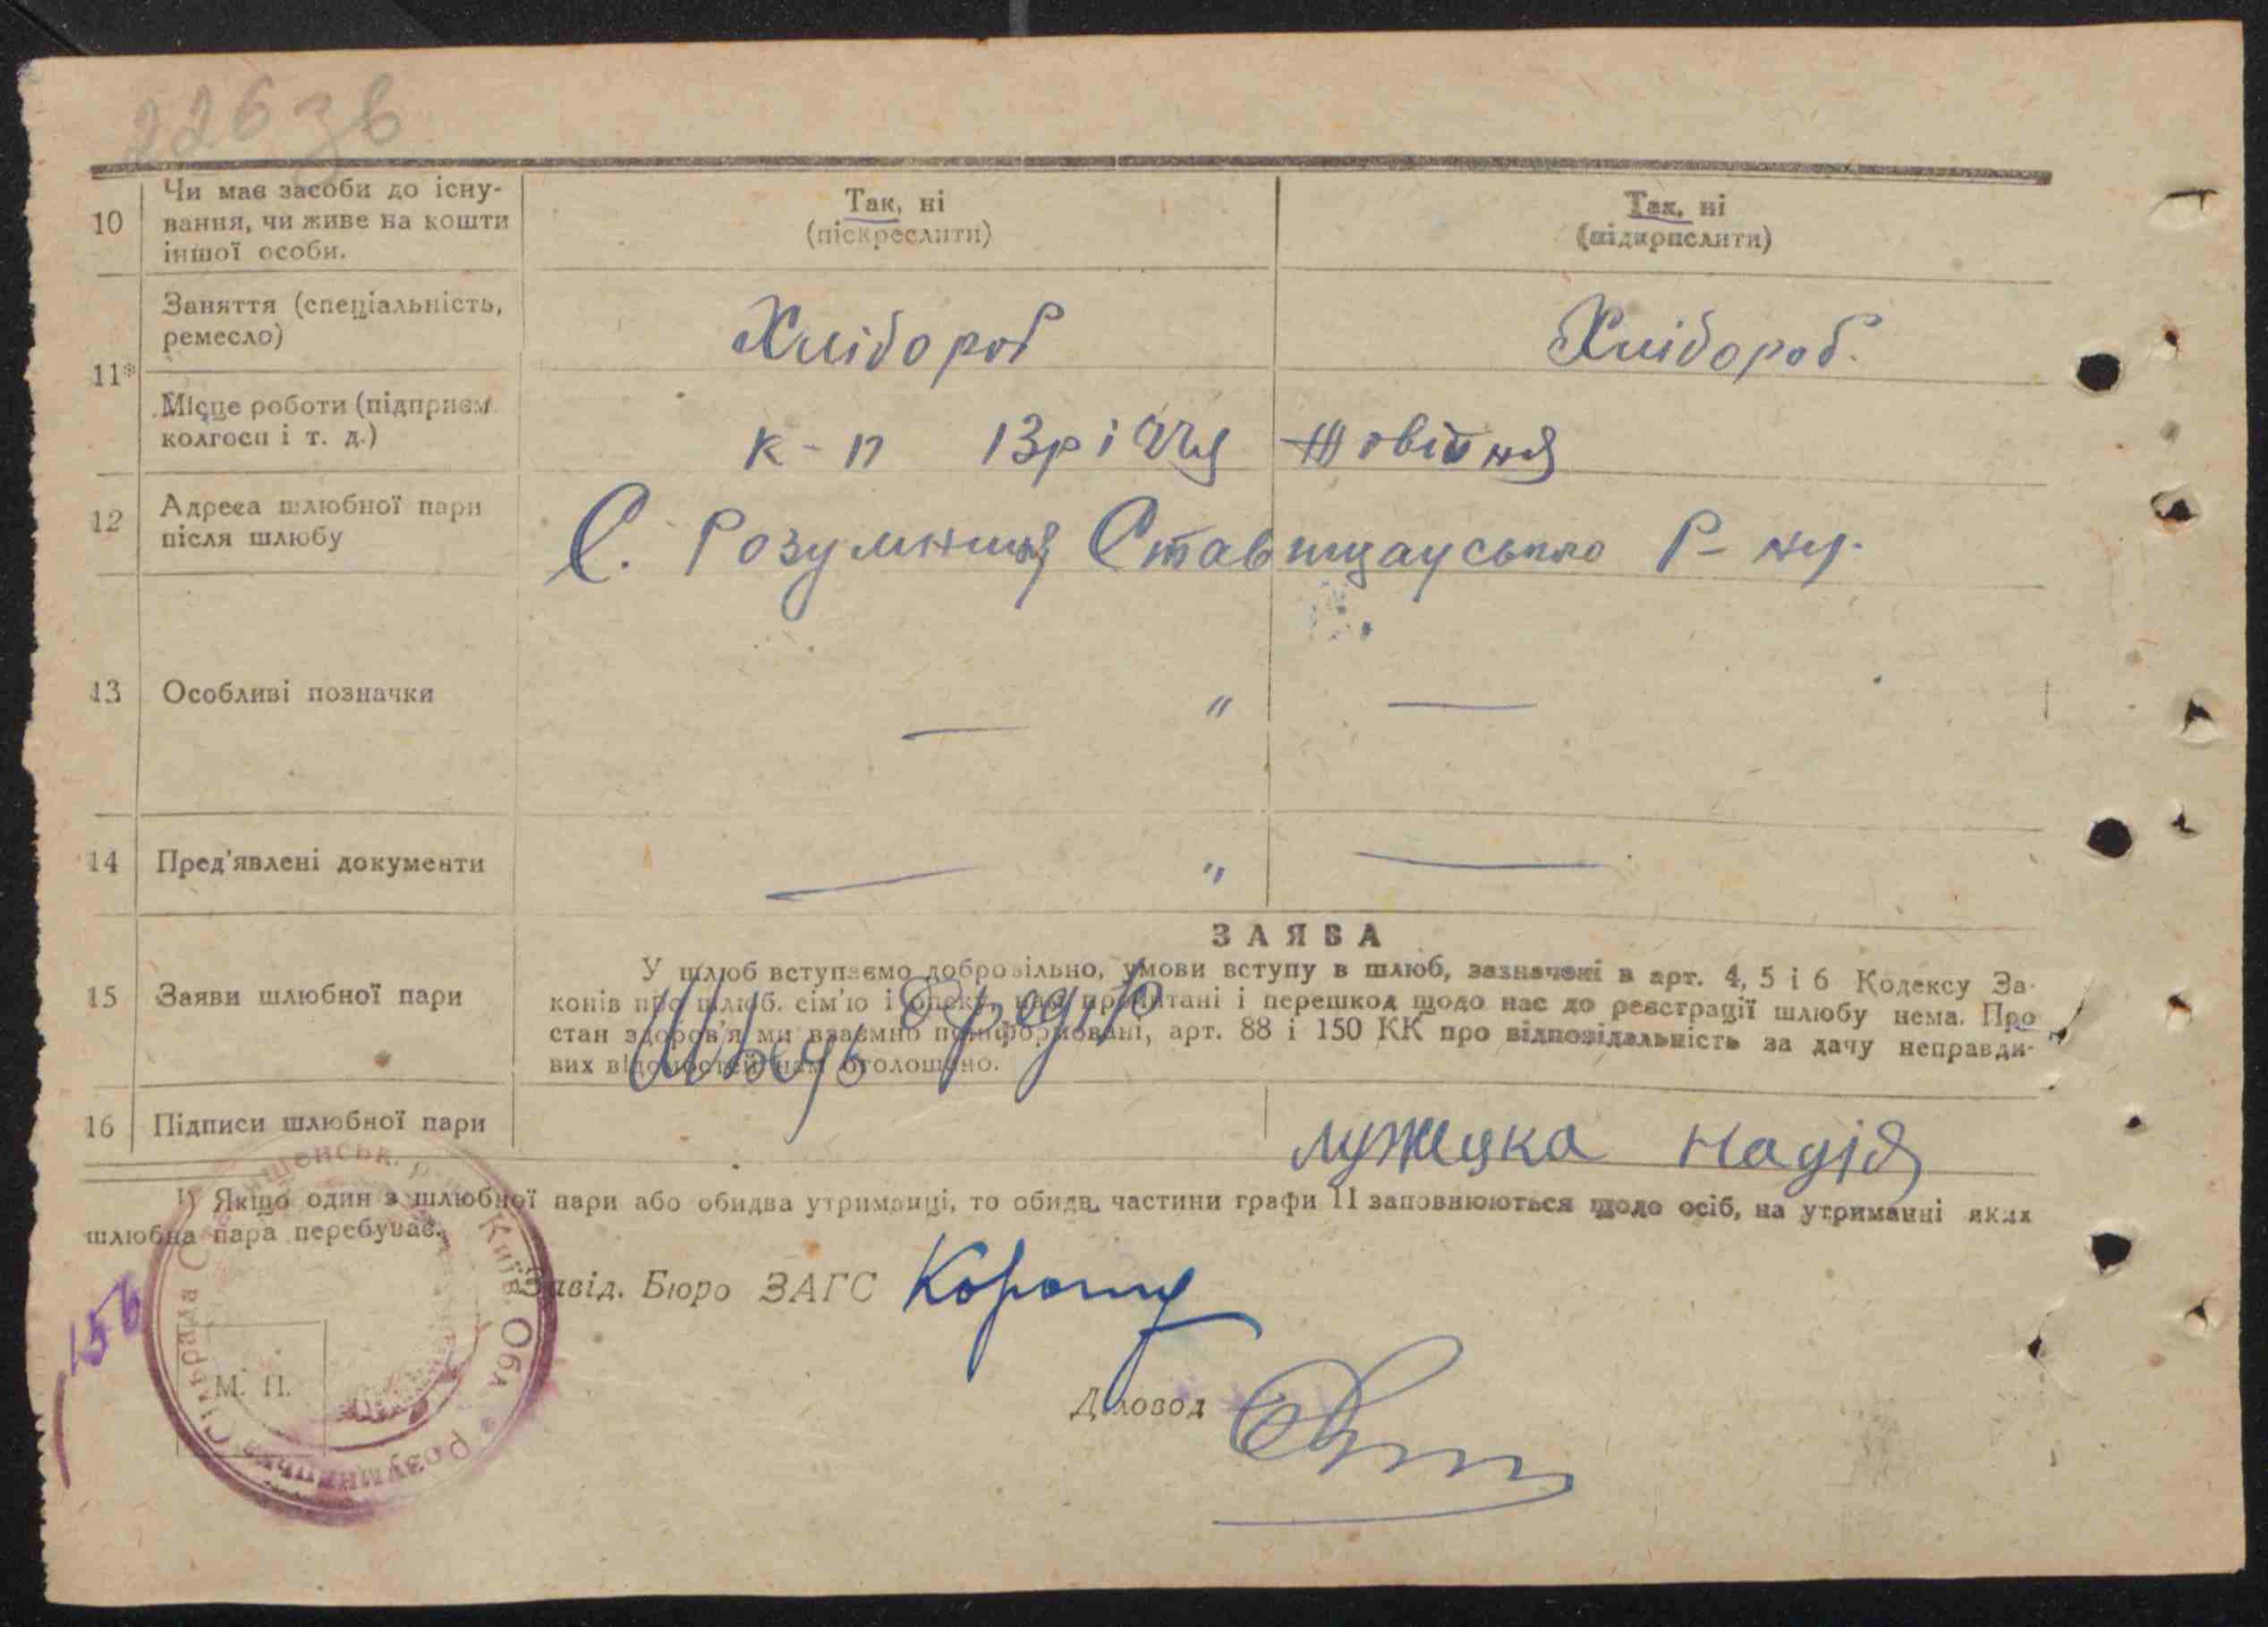 226 зв
10
Чи має засоби до існу-
вання, чи живе на кошти
іншої особи.
Так, ні
(піскреслити)
Так, ні
(підкрислити)
11*
Заняття (спеціальність,
ремесло)
Хлібороб
Хлібороб.
Місце роботи (підприєм
колгосп і т. д.)
к-п 13річчя Жовтня
12
Адреса шлюбної пари
після шлюбу
С. Розумниця Ставищауського Р-ну.
13
Особливі позначки
— " —
14
Пред'явлені документи
— " —
15
Заяви шлюбної пари
ЗАЯВА
У шлюб вступаємо добровільно, умови вступу в шлюб, зазначені в арт. 4, 5 і 6 Кодексу За-
конів про шлюб. сім'ю і опеку, нам прочитані і перешкод щодо нас до реєстрації шлюбу нема. Про
стан здоров'я ми взаємно поінформовані, арт. 88 і 150 КК про відповідальність за дачу неправди-
вих відомостей нам оголошено.
16
Підписи шлюбної пари
Лужецка Надія
¹) Якщо один з шлюбної пари або обидва утриманці, то обидв. частини графи 11 заповнюються щодо осіб, на утриманні яких
шлюбна пара перебуває.
Завід. Бюро ЗАГС
Діловод
М. П.
156
Розумницька Сільрада
Київ. Обл